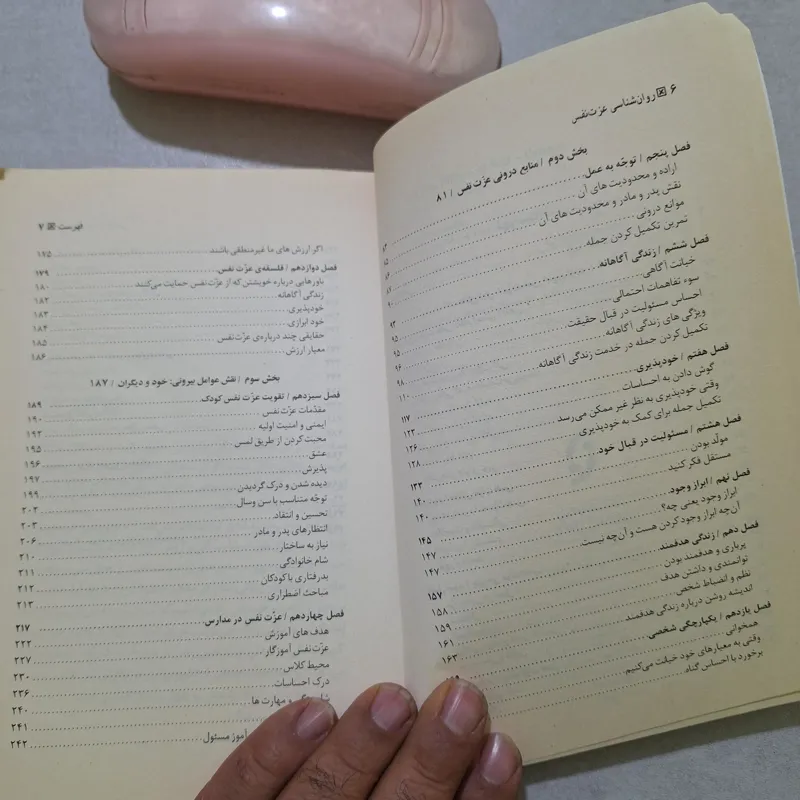 ۶ روان‌شناسی عزت‌نفس
بخش دوم / منابع درونی عزّت نفس / ۸۱
فصل پنجم / توجّه به عمل
اراده و محدودیت های آن
نقش پدر و مادر و محدودیت های آن
موانع درونی
تمرین تکمیل کردن جمله ۹۰
فصل ششم / زندگی آگاهانه ۹۳
خیانت آگاهی ۹۵
سوء تفاهمات احتمالی ۹۵
احساس مسئولیت در قبال حقیقت ۹۶
ویژگی های زندگی آگاهانه ۹۸
تکمیل کردن جمله در خدمت زندگی آگاهانه ۱۱۰
فصل هفتم / خودپذیری ۱۱۷
گوش دادن به احساسات ۱۲۳
وقتی خودپذیری به نظر غیر ممکن می‌رسد ۱۲۶
تکمیل جمله برای کمک به خودپذیری ۱۲۸
فصل هشتم / مسئولیت در قبال خود ۱۳۳
مولّد بودن ۱۴۰
مستقل فکر کنید ۱۴۰
فصل نهم / ابراز وجود ۱۴۵
ابراز وجود یعنی چه؟ ۱۴۷
آن‌چه ابراز وجود کردن هست و آن‌چه نیست ۱۴۷
فصل دهم / زندگی هدفمند ۱۵۷
پرباری و هدفمند بودن ۱۵۸
توانمندی و داشتن هدف ۱۵۹
نظم و انضباط شخص ۱۶۱
اندیشه روشن درباره زندگی هدفمند ۱۶۳
فصل یازدهم / یکپارچگی شخصی
همخوانی
وقتی به معیارهای خود خیانت می‌کنیم
برخورد با احساس گناه
فهرست ۷
اگر ارزش های ما غیرمنطقی باشند ۱۷۵
فصل دوازدهم / فلسفه‌ی عزّت نفس ۱۷۹
باورهایی درباره خویشتن که از عزّت‌نفس حمایت می‌کنند ۱۸۰
زندگی آگاهانه ۱۸۲
خودپذیری ۱۸۳
خود ابرازی ۱۸۴
حقایقی چند درباره‌ی عزّت‌نفس ۱۸۵
معیار ارزش ۱۸۶
بخش سوم / نقش عوامل بیرونی: خود و دیگران / ۱۸۷
فصل سیزدهم / تقویت عزّت نفس کودک ۱۸۹
مقدّمات عزّت نفس ۱۹۰
ایمنی و امنیت اولیه ۱۹۲
محبت کردن از طریق لمس ۱۹۵
عشق ۱۹۶
پذیرش ۱۹۷
دیده شدن و درک گردیدن ۱۹۹
توجّه متناسب با سن وسال ۲۰۲
تحسین و انتقاد ۲۰۳
انتظارهای پدر و مادر ۲۰۶
نیاز به ساختار ۲۱۰
شام خانوادگی ۲۱۱
بدرفتاری با کودکان ۲۱۲
مباحث اضطراری ۲۱۳
فصل چهاردهم / عزّت نفس در مدارس ۲۱۷
هدف های آموزش ۲۲۲
عزّت‌نفس آموزگار ۲۲۷
محیط کلاس ۲۳۰
درک احساسات ۲۳۶
و مهارت ها ۲۴۰
۲۴۱
آموز مسئول ۲۴۲